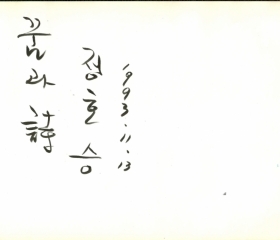 꿈과 詩
정호승
1993. 11. 13